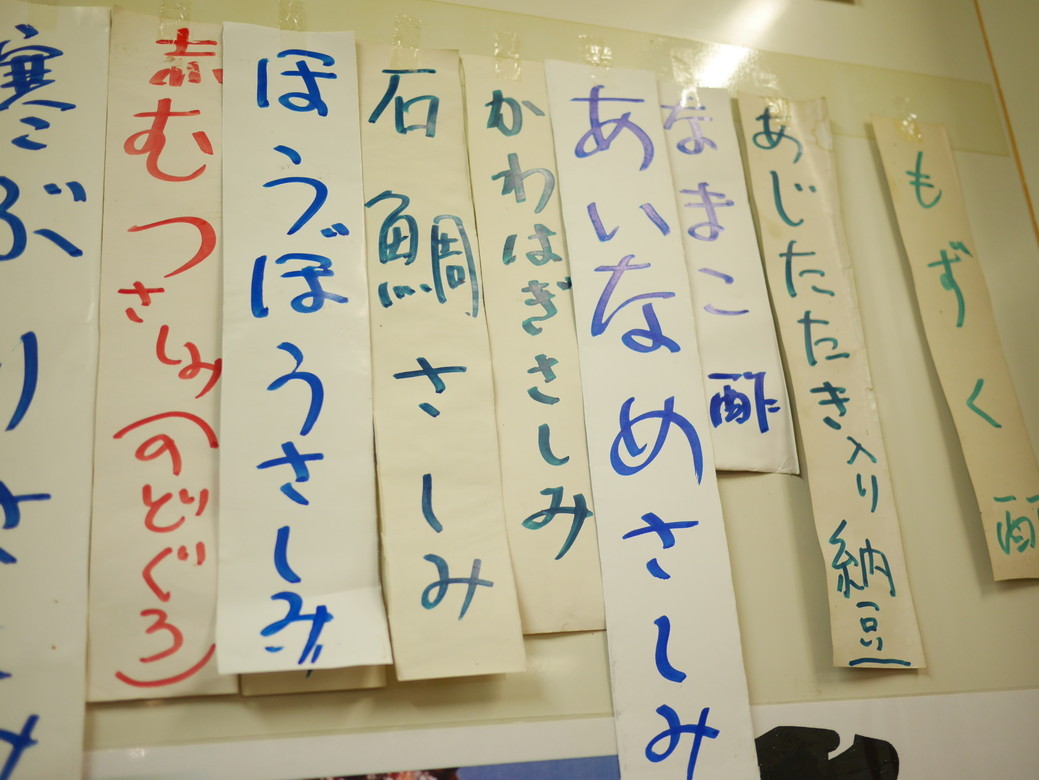 もずく酢
あじたたき入り納豆
なまこ酢
あいなめさしみ
かわはぎさしみ
石鯛さしみ
ほうぼうさしみ
赤むつさしみ(のどぐろ)
寒ぶりさしみ